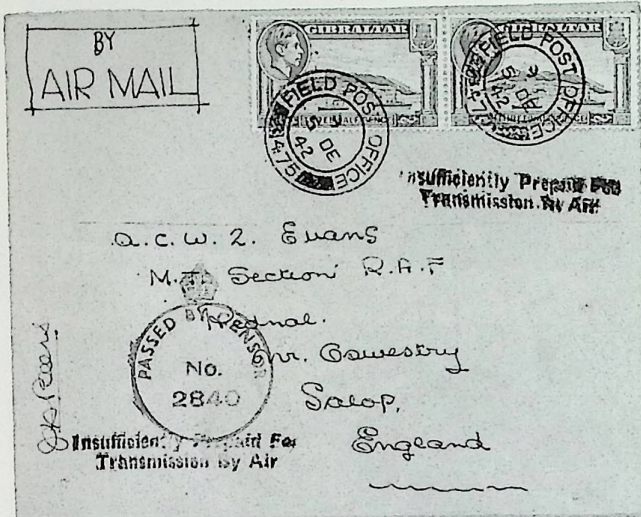 BY
AIR MAIL
GIBRALTAR
GIBRALTAR
FIELD POST OFFICE
475
5 DE
42
FIELD POST OFFICE
475
5 DE
42
Insufficiently Prepaid For
Transmission By Air
A.C.W. 2. Evans
M.T. Section R.A.F
Rednal.
nr. Oswestry
Salop,
England
PASSED BY CENSOR
No.
2840
Insufficiently Prepaid For
Transmission By Air